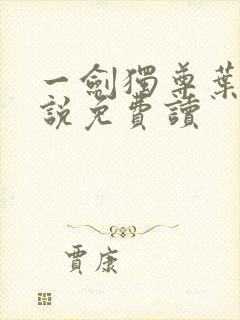 一劍獨尊葉
說免費讀
賈康